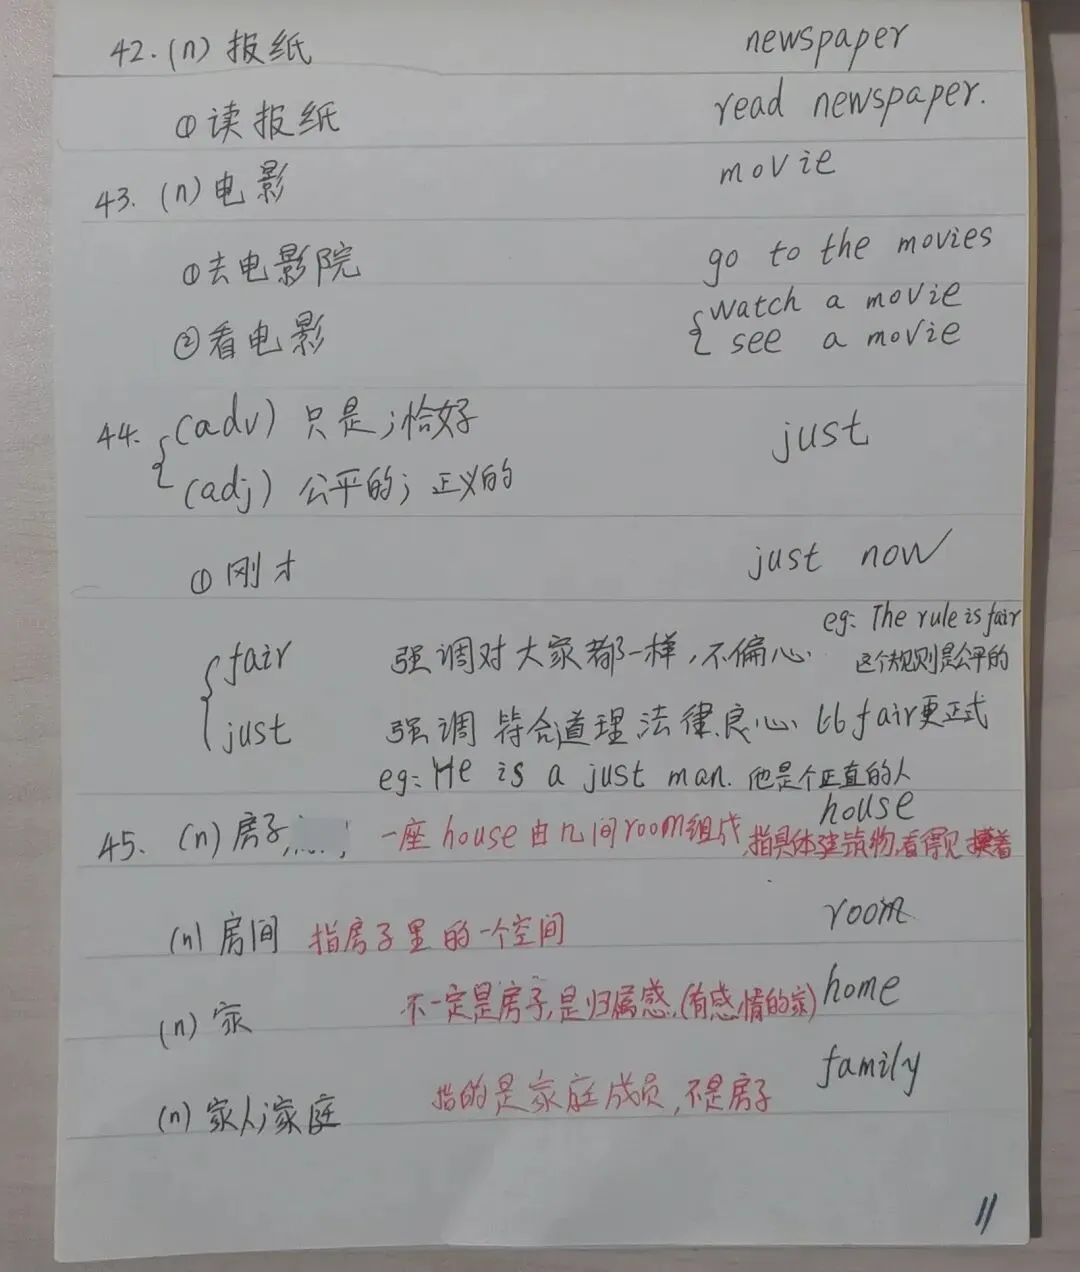 42. (n) 报纸 newspaper
①读报纸 read newspaper.
43. (n) 电影 movie
①去电影院 go to the movies
②看电影 { watch a movie
see a movie
44. { (adv) 只是；恰好 just
(adj) 公平的；正义的
①刚才 just now
eg: The rule is fair
{ fair 强调对大家都一样，不偏心. 这个规则是公平的
just 强调 符合道理 法律、良心、比fair更正式
eg: He is a just man. 他是个正直的人
house
45. (n) 房子 一座 house 由几间room组成,指具体建筑物,看得见 摸着
(n) 房间 指房子里的一个空间 room
(n) 家 不一定是房子,是归属感,(有感情的家) home
(n) 家人;家庭 指的是家庭成员,不是房子 family
11